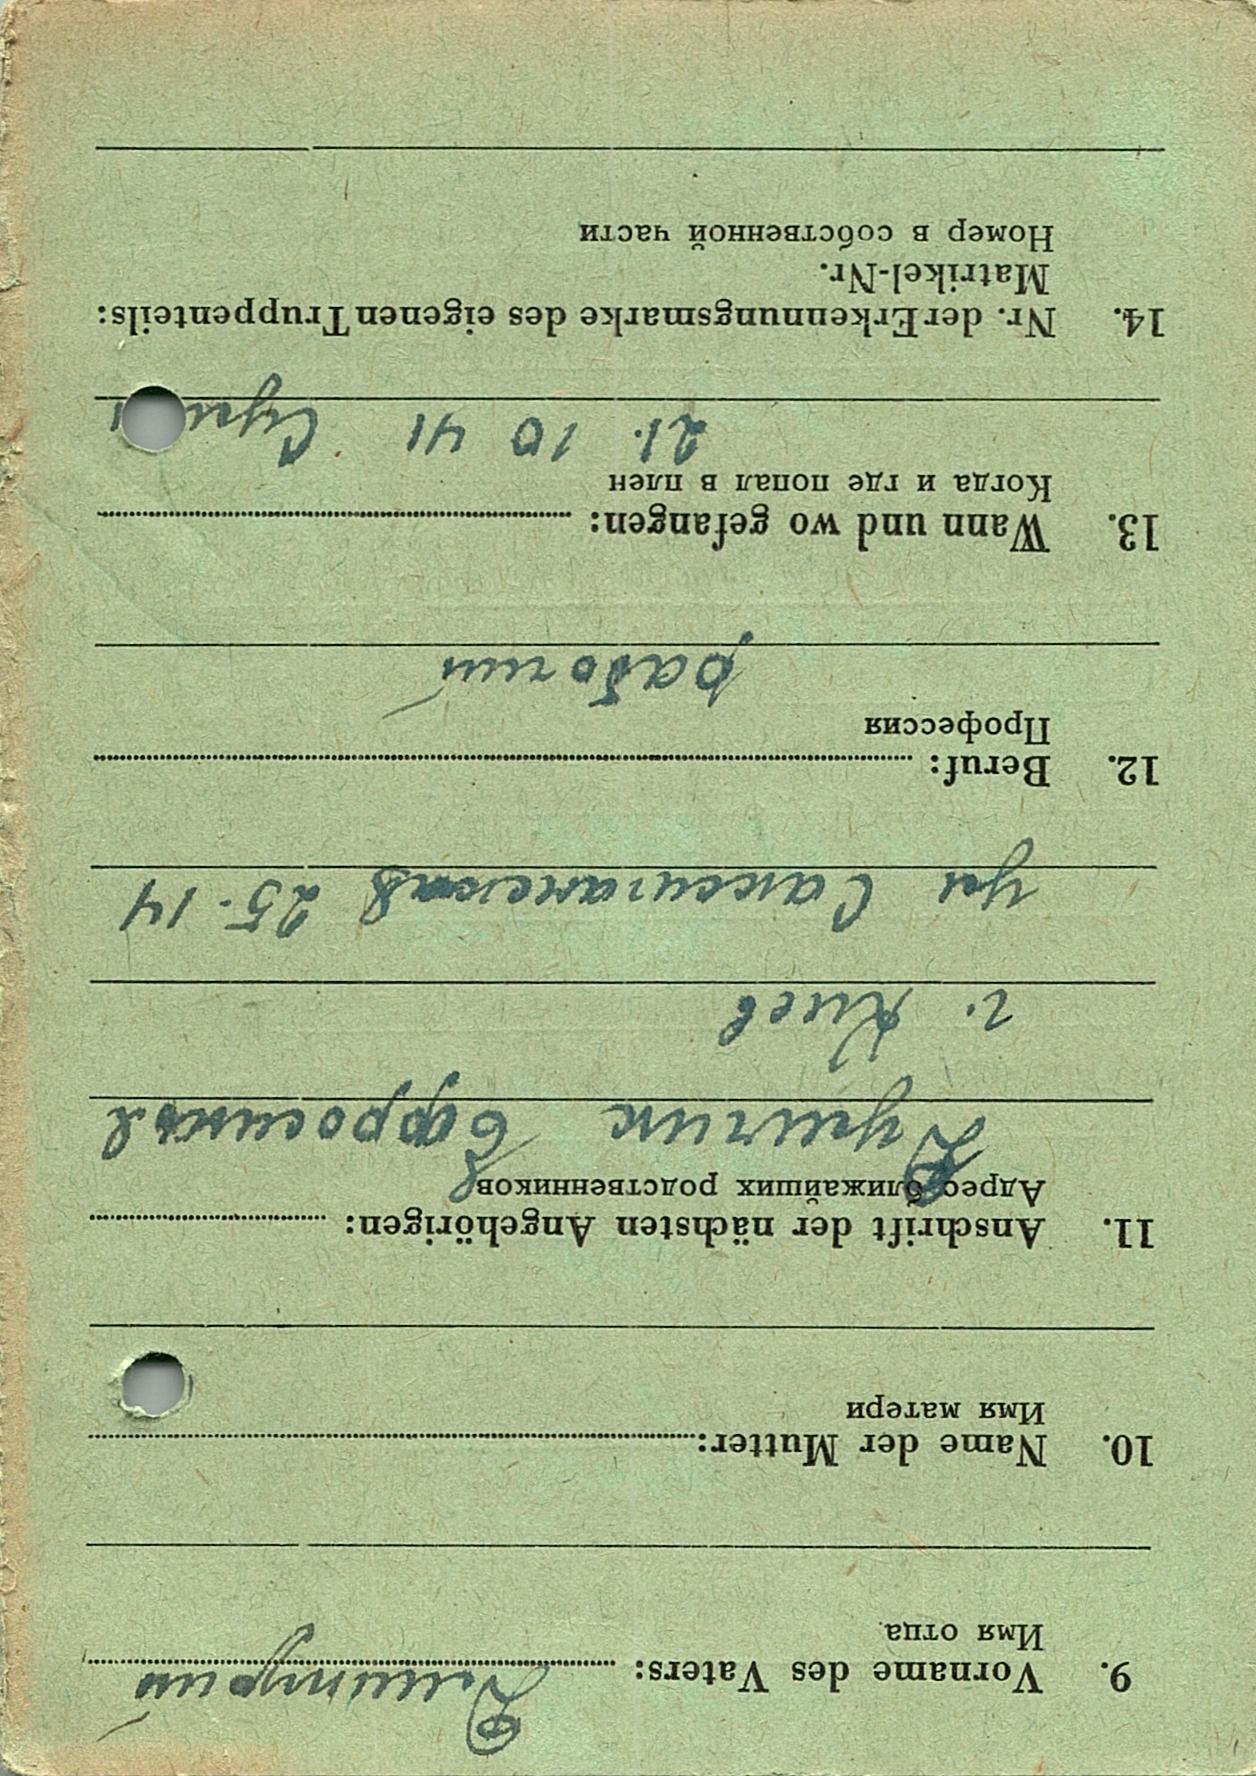 9. Vorname des Vaters: Дмитрий
Имя отца
10. Name der Mutter:
Имя матери
11. Anschrift der nächsten Angehörigen:
Адрес ближайших родственников
Ефросинья
г. Киев
ул Саксаганского 25-14
12. Beruf:
Профессия
рабочий
13. Wann und wo gefangen:
Когда и где попал в плен
21. 10 41
14. Nr. der Erkennungsmarke des eigenen Truppenteils:
Matrikel-Nr.
Номер в собственной части